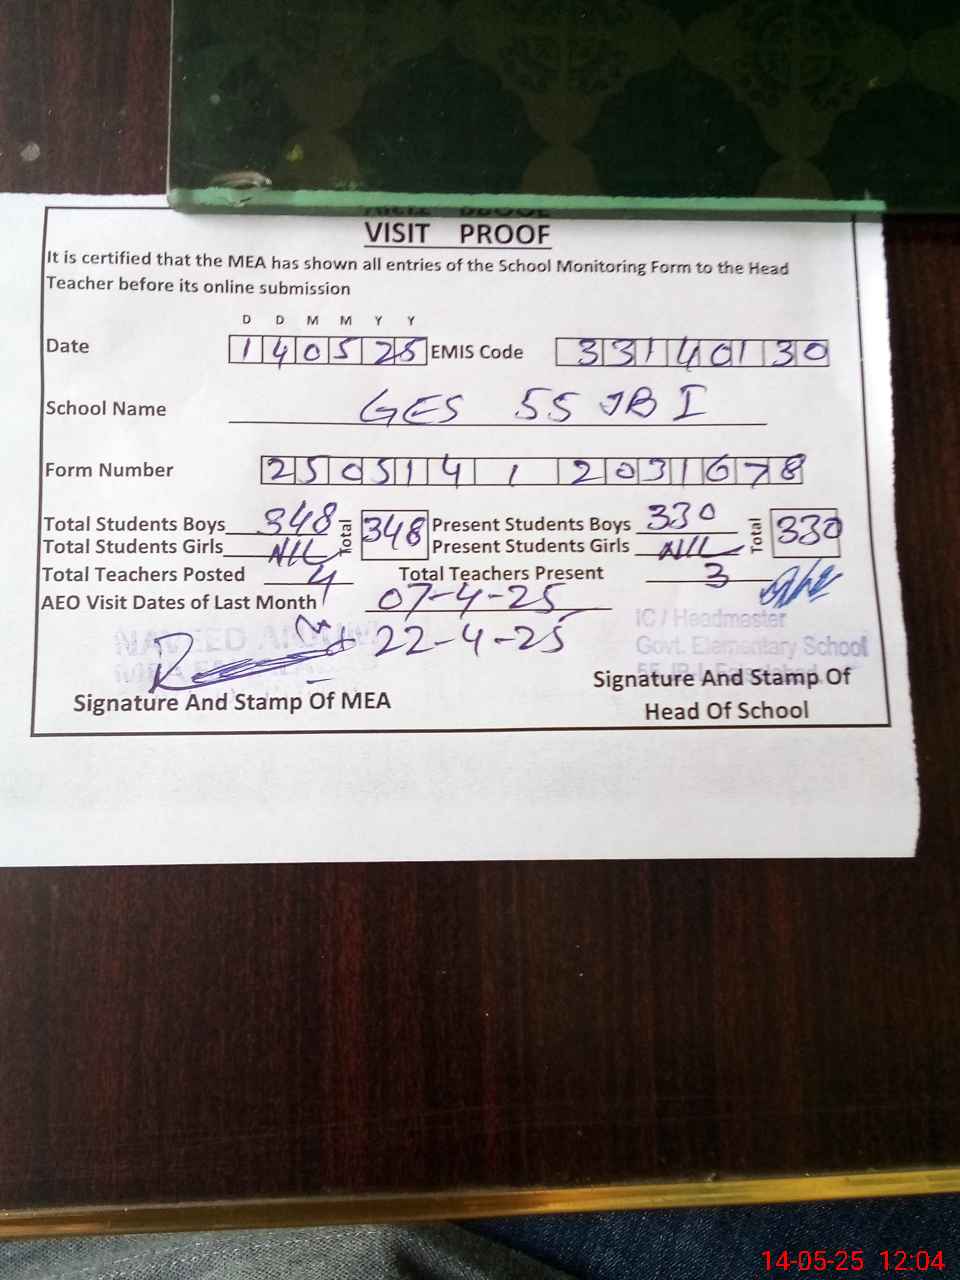 VISIT PROOF
It is certified that the MEA has shown all entries of the School Monitoring Form to the Head
Teacher before its online submission
D D M M Y Y
Date 140525 EMIS Code 33140130
School Name GES 55 JB I
Form Number 250514 1 2031678
Total Students Boys 348 Total 348 Present Students Boys 330 Total 330
Total Students Girls NIL Present Students Girls NIL
Total Teachers Posted 4 Total Teachers Present 3
AEO Visit Dates of Last Month 07-4-25
22-4-25
IC / Headmaster
Govt. Elementary School
Signature And Stamp Of MEA
Signature And Stamp Of
Head Of School
14-05-25 12:04